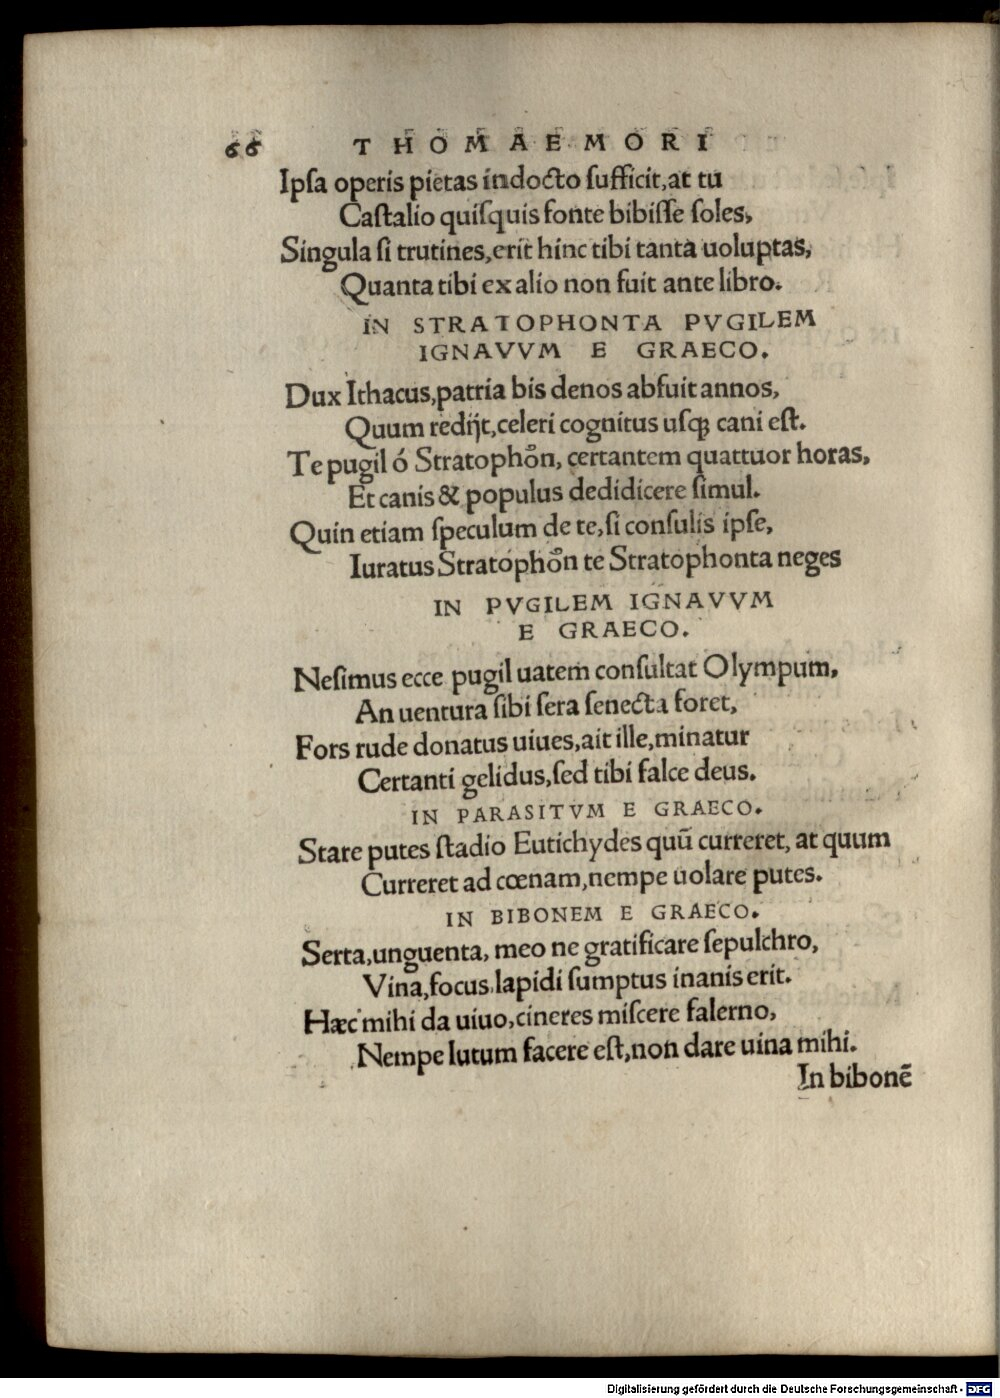 66 THOMAE MORI
Ipſa operis pietas indocto ſufficit, at tu
Caſtalio quiſquis fonte bibiſſe ſoles,
Singula ſi trutines, erit hinc tibi tanta uoluptas,
Quanta tibi ex alio non fuit ante libro.
IN STRATOPHONTA PVGILEM
IGNAVVM E GRAECO.
Dux Ithacus, patria bis denos abfuit annos,
Quum redijt, celeri cognitus uſqꝫ cani eſt.
Te pugil ó Stratophôn, certantem quattuor horas,
Et canis & populus dedidicere ſimul.
Quin etiam ſpeculum de te, ſi conſulis ipſe,
Iuratus Stratophôn te Stratophonta neges
IN PVGILEM IGNAVVM
E GRAECO.
Neſimus ecce pugil uatem conſultat Olympum,
An uentura ſibi ſera ſenecta foret,
Fors rude donatus uiues, ait ille, minatur
Certanti gelidus, ſed tibi falce deus.
IN PARASITVM E GRAECO.
Stare putes ſtadio Eutichydes quũ curreret, at quum
Curreret ad cœnam, nempe uolare putes.
IN BIBONEM E GRAECO.
Serta, unguenta, meo ne gratificare ſepulchro,
Vina, focus, lapidi ſumptus inanis erit.
Hæc mihi da uiuo, cineres miſcere falerno,
Nempe lutum facere eſt, non dare uina mihi.
In bibonẽ
Digitalisierung gefördert durch die Deutsche Forschungsgemeinschaft - DFG